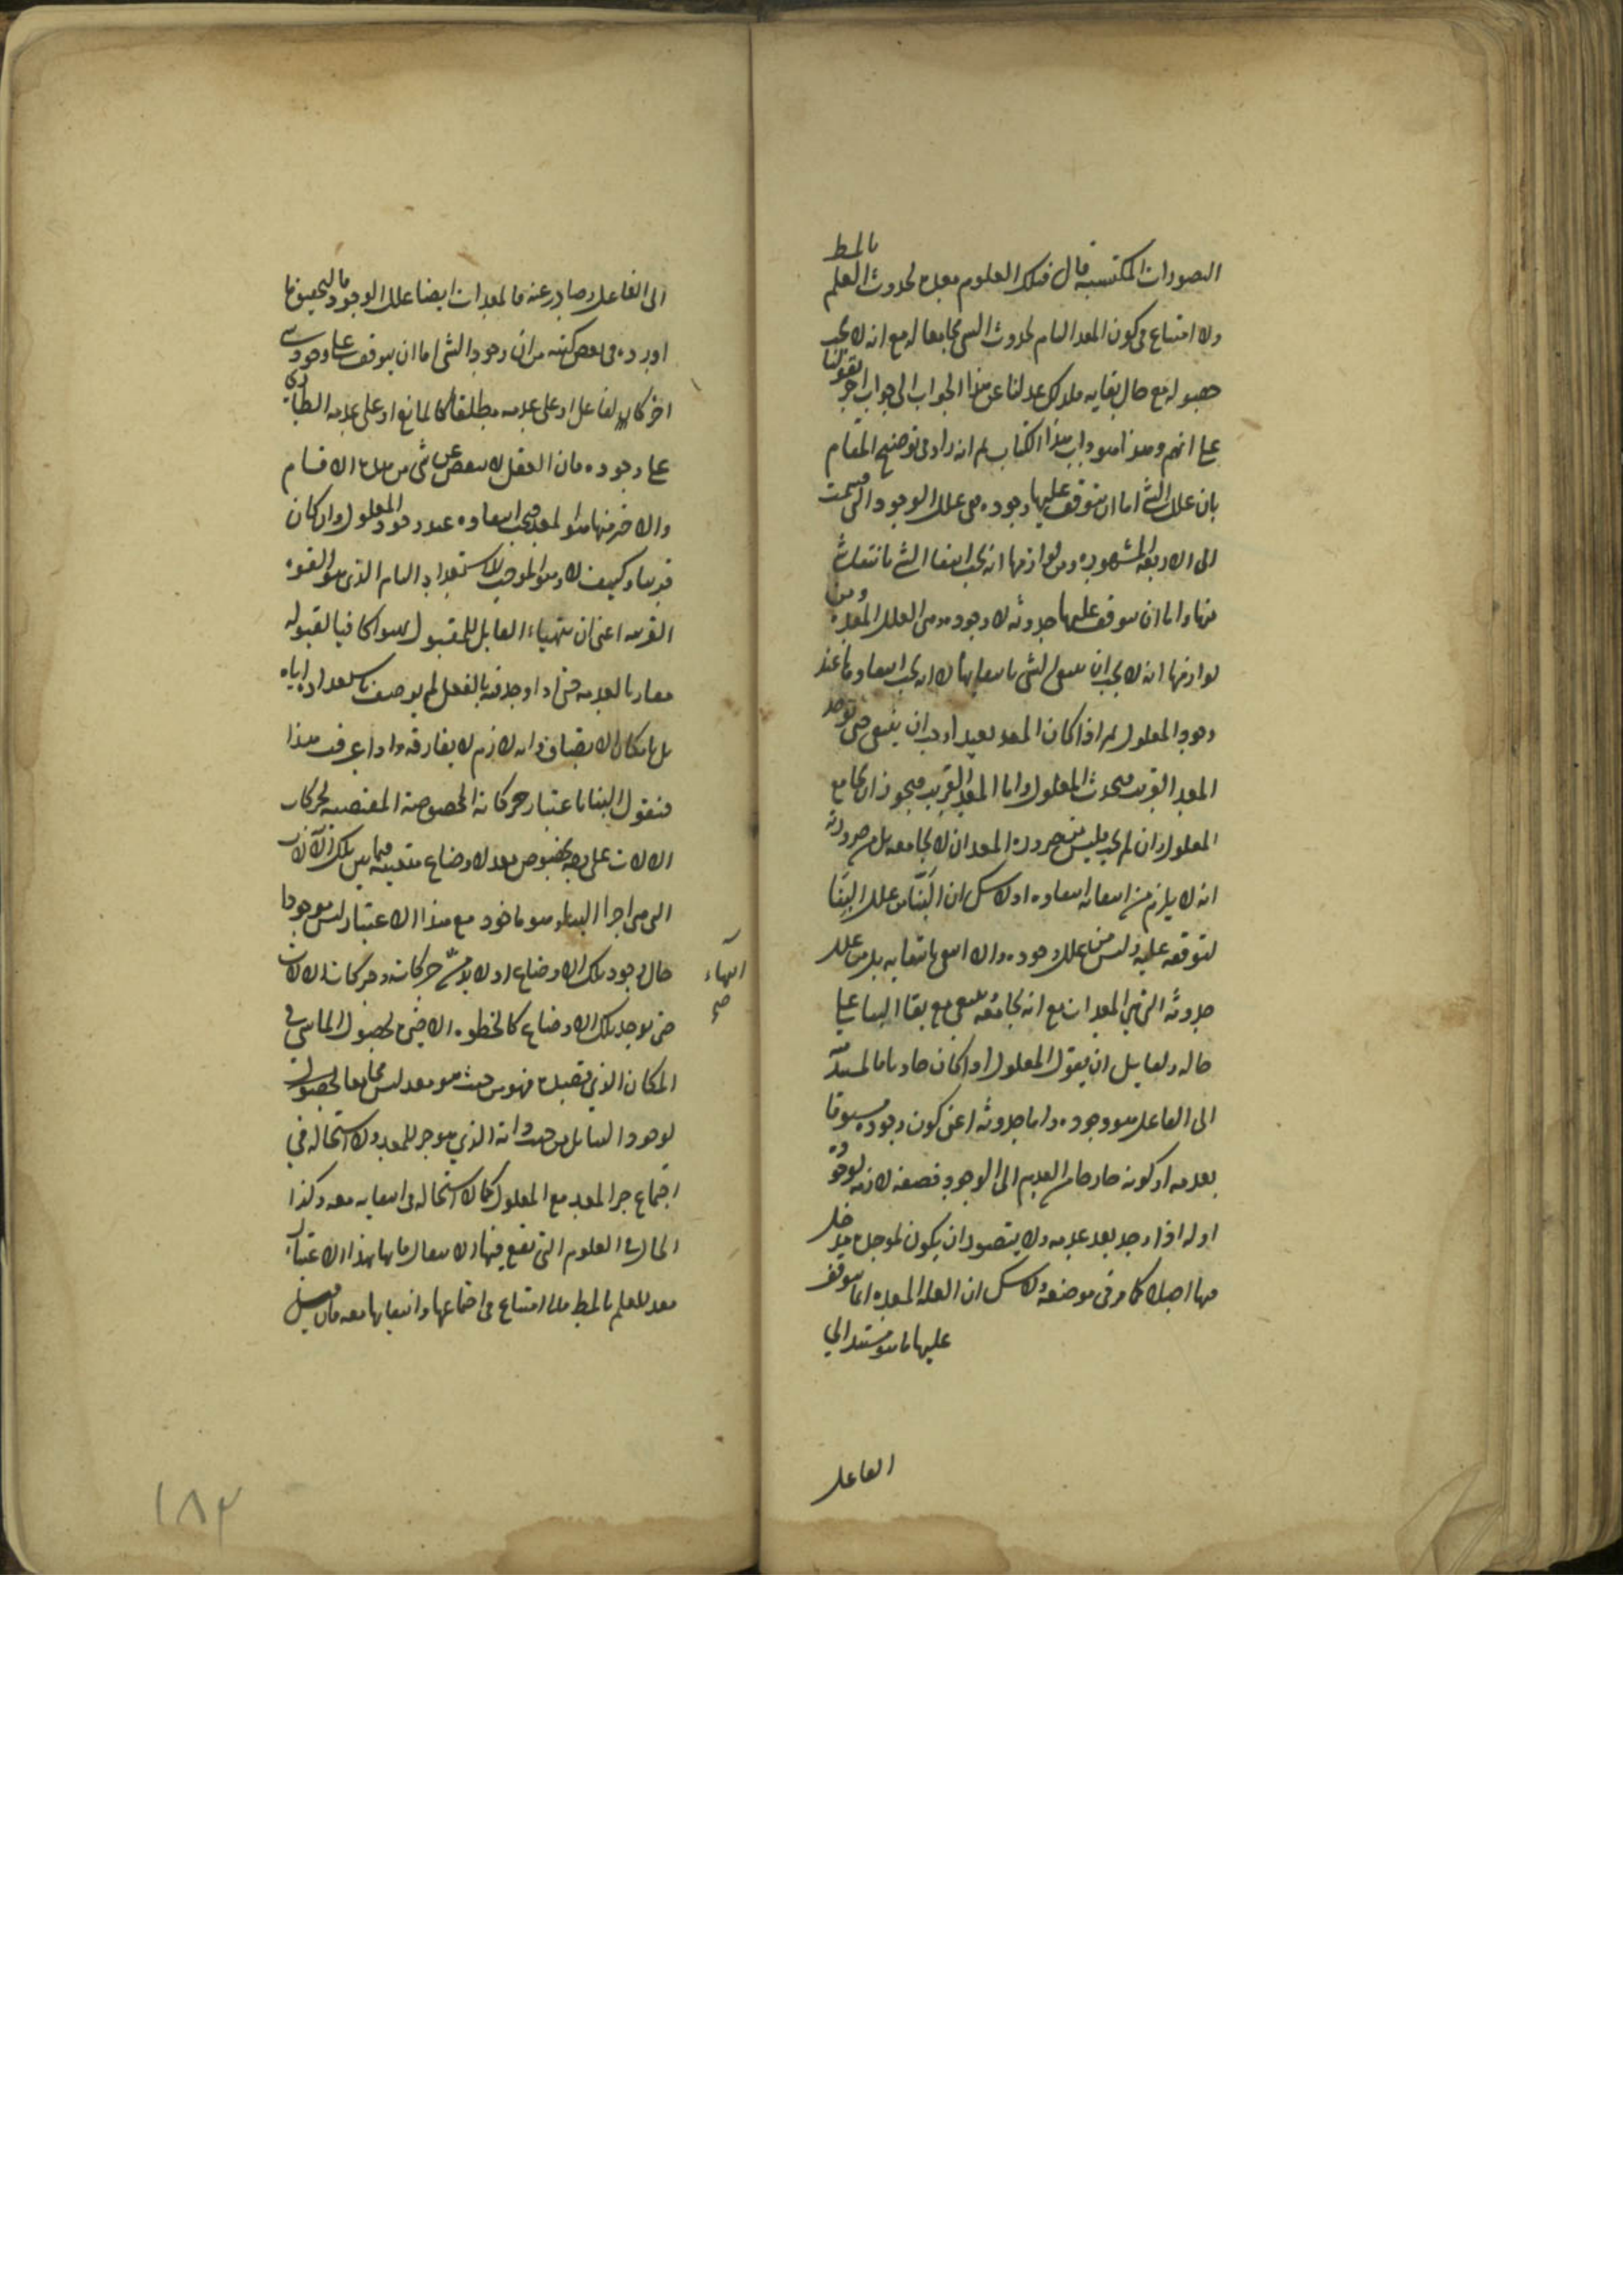 التصورات المكتسبة قال فتلك العلوم معدة لحدوث العلم بالمط
ولا امتناع في كون المعد التام لحدوث الشي مجامعا له مع انه لا يجب
حصوله مع حال بقايه فلذلك عدلنا عن هذا الجواب الى جواب اخر بقولنا
على انهم وهذا هو داب هذا الكتاب ثم انه زاد في توضيح المقام
بان علل الشي اما ان يتوقف عليها وجوده وهي علل الوجود التي قسمت
الى الاربعة المشهورة ومن لوازمها انه يجب انتفا الشي بانتفا شي
منها واما ان يتوقف عليها حدوثه لا وجوده وهي العلل المعدة ومن
لوازمها انه لا يجب ان ينتفي الشي بانتفايها لا انه يجب انتفاوها عند
وجود المعلول نعم اذا كان المعد بعيدا وجب ان ينتفي حتى يوجد
المعد القريب فيحدث المعلول واما المعد القريب فيجوز ان يجامع
المعلول وان لم يجب فليس من ضرورة المعد ان لا يجامعه بل من ضرورته
انه لا يلزم من انتفائه انتفاوه اولا شك ان البنا من علل البنا
لتوقفه عليه وليس من علل وجوده والا انتفى بانتفايه بل من علل
حدوثه التي هي المعدات مع انه يجامعه ينتفي مع بقا البنا على
حاله ولقايل ان يقول المعلول اذا كان حادثا فالمستند
الى الفاعل هو وجوده واما حدوثه اعني كون وجوده مسبوقا
بعدمه او كونه خارجا من العدم الى الوجود فصفة لازمة لوجوده
او له اذا وجد بعد عدمه ولا يتصور ان يكون لموجده مدخل
فيها اصلا كما مر في موضعه ولا شك ان العلة المعدة انما يتوقف
عليها ما هو مستند الى
الفاعل
الى الفاعل وصادر عنه فالمعدات ايضا علل الوجود فالتحقيق ما
اورده في بعض كتبه من ان وجود الشي اما ان يتوقف على وجود شي
اخر كالفاعل او على عدمه مطلقا كالمانع او على عدمه الطاري
على وجوده فان العقل لا ينقبض عن شي من هذه الاقسام
والاخر منها هو المعد فيجب انتفاوه عند وجود المعلول وان كان
قريبا وكيف لا وهو الموجب للاستعداد التام الذي هو القوة
القريبة اعني ان يتهياء القابل للمقبول تهيوا كافيا لقبوله
مقارنا لعدمه حتى اذا وجد فيه بالفعل لم يوصف باستعداده اياه
بل بامكان الاتصاف فانه لازم لا يفارقه واذا عرفت هذا
فنقول البنا باعتبار حركاته المخصوصة المقتضية لحركات
الالات على وجه مخصوص معد لاوضاع متعينة فيما بين تلك الآلات
التي هي اجزا البناء وهو ماخوذ مع هذا الاعتبار ليس موجودا
حال وجود تلك الاوضاع اذ لا بد من حركاته وحركات الالات
انتهاء
صح
حتى يوجد تلك الاوضاع كالخطوة الاخيرة لحصول الماشي في
المكان الذي قصده فهو من حيث هو معد ليس مجامعا لحصول
لوجود القابل من حيث ذاته الذي هو جزء للمعد ولا استحالة في
اجتماع جز المعد مع المعلول كما لا استحالة في انتفايه معه وكذا
الحال في العلوم التي تقع فيها الانتقال فانها بهذا الاعتبار
معد للعلم بالمط فلا امتناع في اجتماعها وانتفايها معه فان قيل
١٨٢